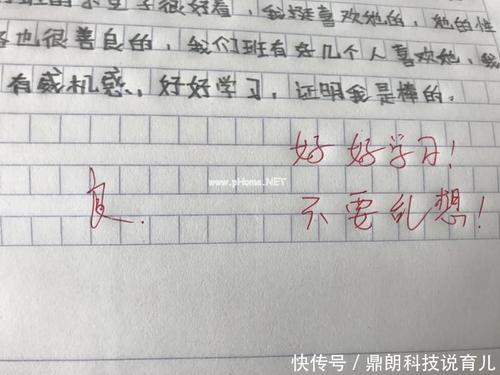 很好看，我挺喜欢她的，她的性
也很善良的，我们班有好几个人喜欢她，我
有感机感，好好学习，证明我是棒的。
好好学习！
www.pHome.NET
良.
不要乱想！
快传号/鼎朗科技说育儿